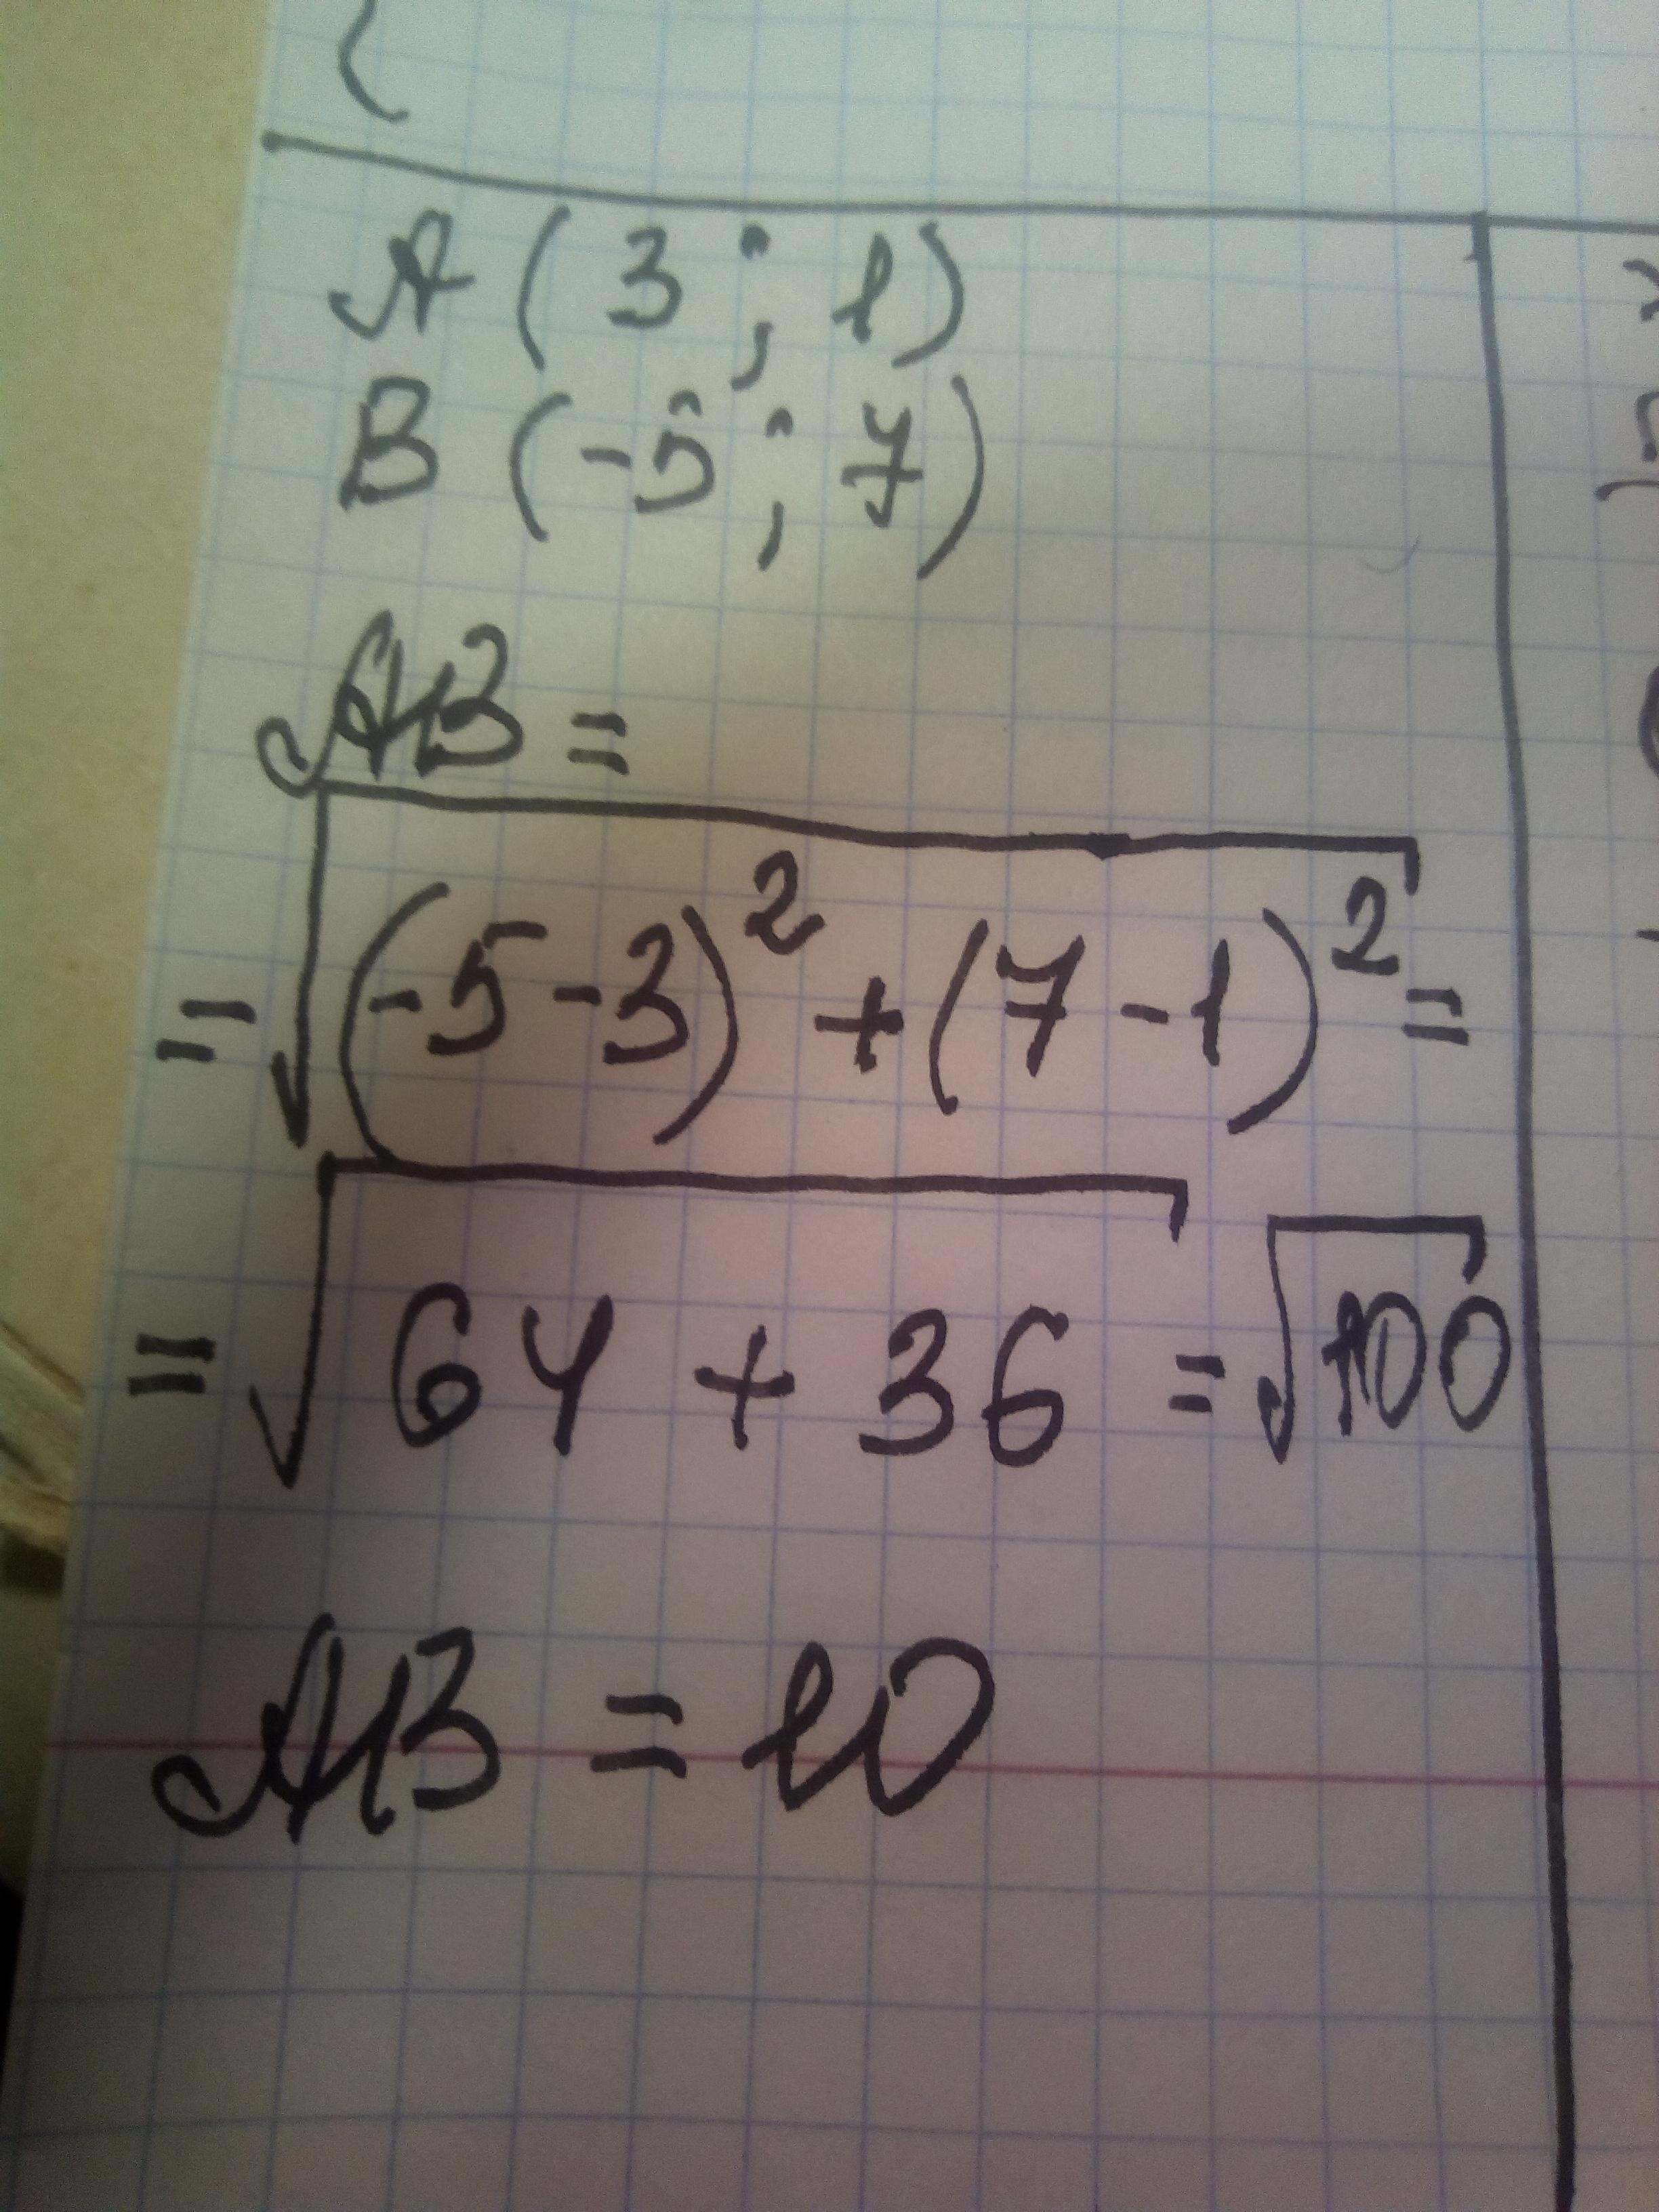 A (3 ; 1)
B (-5 ; 7)
AB =
= √((-5-3)² + (7-1)²) =
= √(64 + 36) = √100
AB = 10